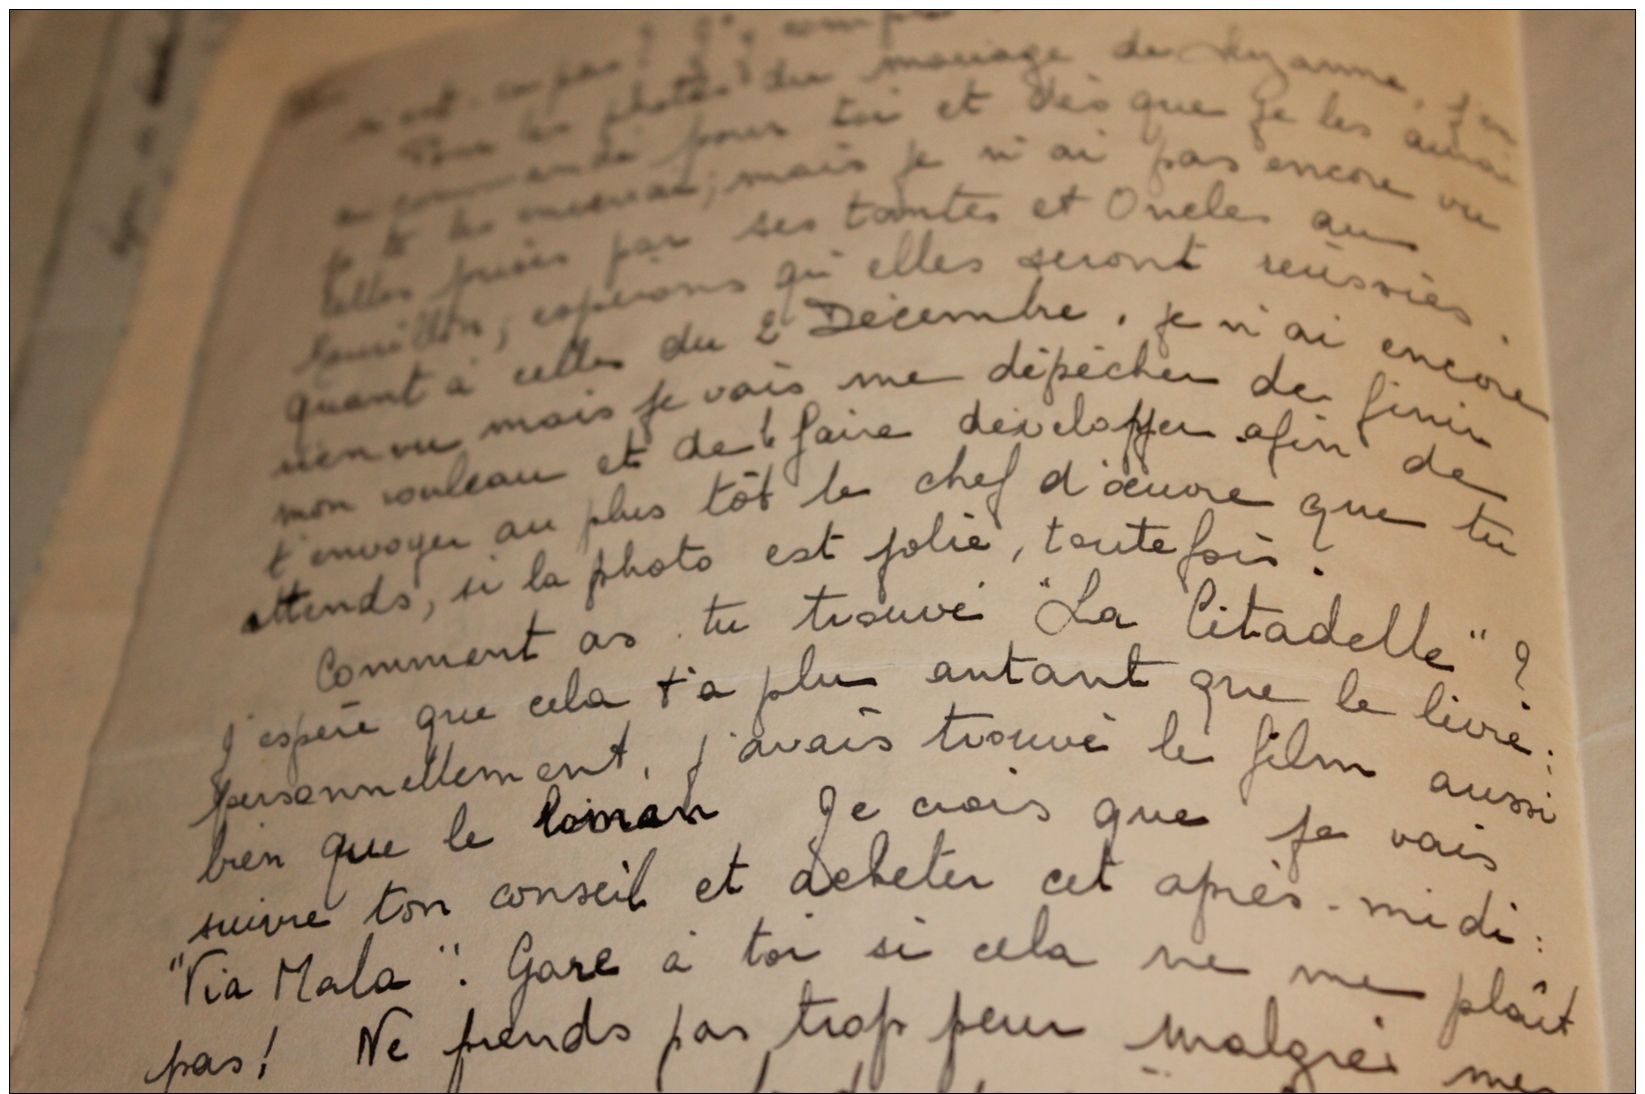 n'est-ce pas ?
Pour les photos du mariage de Suzanne, j'en
ai commandé pour toi et dès que je les aurai
je te les enverrai; mais je n'ai pas encore vu
celles prises par ses tantes et Oncles au
; espérons qu'elles seront réussies.
Quant à celles du 2 Décembre, je n'ai encore
rien vu mais je vais me dépêcher de finir
mon rouleau et de le faire développer afin de
t'envoyer au plus tôt le chef d'œuvre que tu
attends, si la photo est jolie, toutefois.
Comment as-tu trouvé "La Citadelle" ?
J'espère que cela t'a plu autant que le livre;
personnellement, j'avais trouvé le film aussi
bien que le roman Je crois que je vais
suivre ton conseil et acheter cet après-midi:
"Via Mala". Gare à toi si cela ne me plaît
pas! Ne prends pas trop peur malgré mes